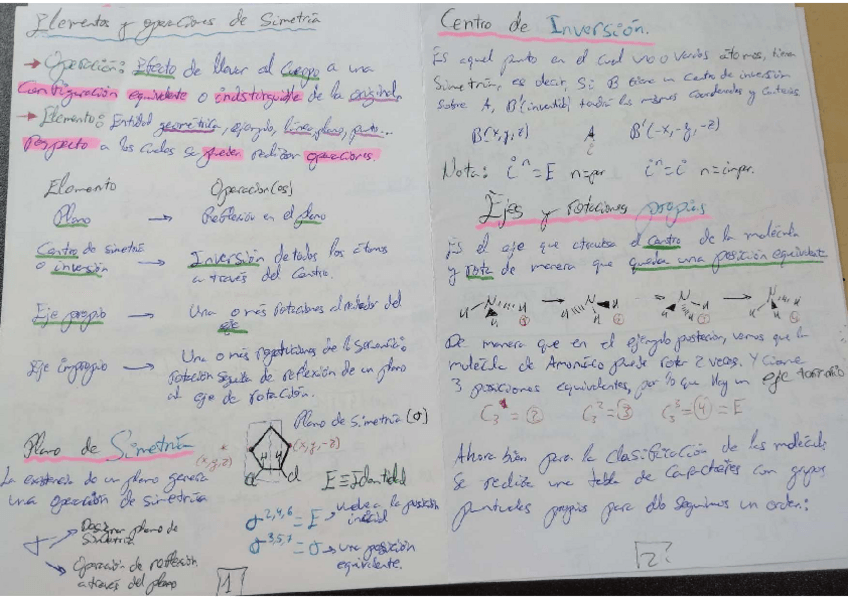 Elementos y operaciones de Simetría
→ Operación: Efecto de llevar al cuerpo a una
configuración equivalente o indistinguible de la original.
→ Elemento: Entidad geométrica, ejemplo, línea, plano, punto...
Respecto a los cuales se pueden realizar operaciones.
Elemento Operacion(es)
Plano → Reflexión en el plano
Centro de simetría → Inversión de todos los átomos
o inversión a través del Centro.
Eje propio → Una o más rotaciones alrededor del
eje
Eje impropio → Una o más repeticiones de la
rotación seguida de reflexión de un plano
al eje de rotación.
Plano de Simetría (σ)
Plano de Simetría (x,y,z) (x,y,-z)
H H
cl cl
La existencia de un plano genera E≡Identidad
una operación de simetría
σ → plano de
simetría
→ Operación de reflexión
a través del plano
σ2,4,6 = E → vuelve a la posición
inicial
σ3,5,7 = σ → una posición
equivalente.
1
Centro de Inversión.
Es aquel punto en el cual uno o varios átomos, tiene
Simetría, es decir, Si B tiene un centro de inversión
sobre A, B'(invertido) tendrá las mismas coordenadas y
B(x,y,z) A B'(-x,-y,-z)
i
Nota: i^n = E n=par i^n = i n=impar.
Ejes y rotaciones propias
Es el eje que atraviesa el centro de la molécula
y rota de manera que queda una posición equivalente
H N H H → H N H → N H → H N H
De manera que en el ejemplo posterior, vemos que la
molécula de Amoníaco puede rotar 2 veces. Y tiene
3 posiciones equivalentes, por lo que hay un eje
C₃¹ = ② C₃² = ③ C₃³ = ④ = E
Ahora bien para la clasificación de las moléculas
se realiza una tabla de caracteres con grupos
puntuales propios para ello seguimos un orden:
2